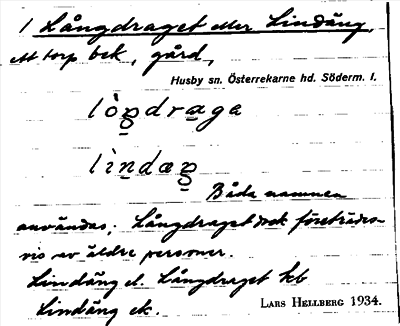 1 Långdraget eller Lindäng,
ett torp bek, gård,
Husby sn. Österrekarne hd. Söderm. l.
lòŋdraga
lìndæŋ
Båda namnen
användas; Långdraget dock företrädes-
vis av äldre personer.
Lindäng el. Långdraget kb
Lindäng ek.
LARS HELLBERG 1934.